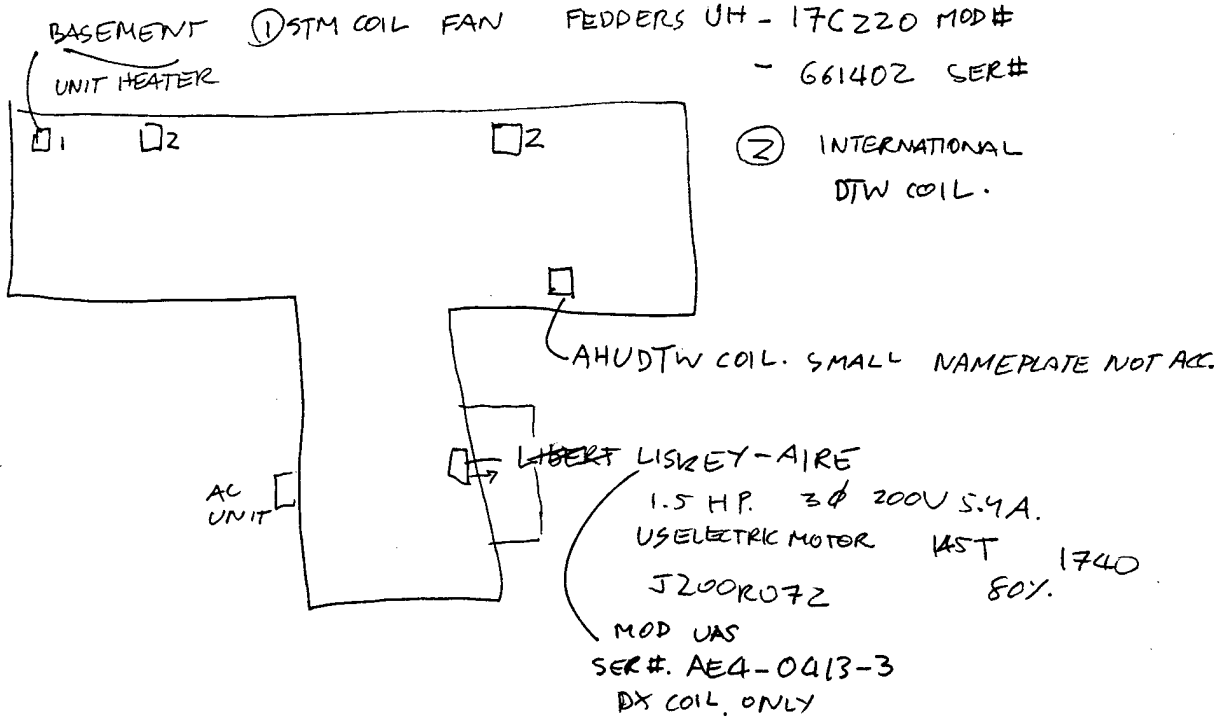 BASEMENT ① STM COIL FAN FEDDERS UH - 17C220 MOD#
UNIT HEATER - G61402 SER#
1 2 2
② INTERNATIONAL
DTW COIL.
AHU DTW COIL. SMALL NAMEPLATE NOT ACC.
LIBERT LISKEY-AIRE
AC
UNIT
1.5 HP. 3Ø 200V 5.4A.
US ELECTRIC MOTOR 145T 1740
J200R072 80%.
MOD UAS
SER#. AE4-0413-3
DX COIL. ONLY